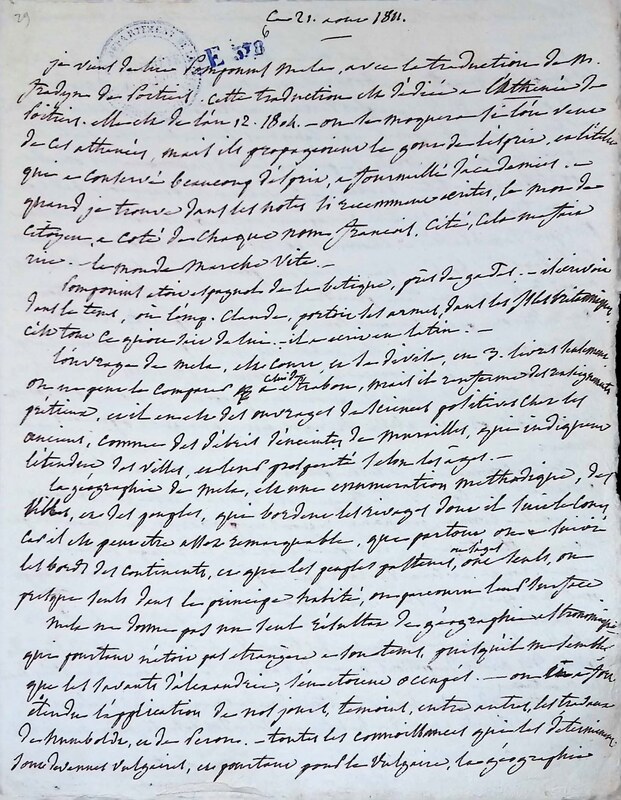 29
Ce 21. aout 1811.
6
E 378
je viens de lire Pomponius Mela, avec la traduction de m.
fradin de Poitiers. Cette traduction est dédiée a l'athénée de
Poitiers. elle est de l'an 12. 1804. — on se moquera si l'on veut
de ces athenées, mais ils propagerent le gout de l'esprit, et l'italie
qui a conservé beaucoup d'esprit, a fourmillé d'academies. —
quand je trouve dans les notes si recommans ecrites, le mot de
Citoyen, a coté de chaque nom francais, cité, cela me fait
rire. le monde Marche Vite. —
Pomponius etoit espagnol de la betique, près de gades. — il ecrivoit
dans le tems, ou l'emp. Claude, portoit les armes, dans les isles britanniques
c'est tout ce qu'on sait de lui. il a ecrit en latin. —
l'ouvrage de mela, est court, et se divise, en 3. livres seulement
on ne peut le comparer a celui de Strabon, mais il renferme des renseignements
prétieux, et il en est des ouvrages de sciences positives chez les
anciens, comme des débris d'enceintes de murailles, qui indiquent
l'étendue des villes, et leur prosperité selon les ages. —
la géographie de mela, est une enumeration methodique, des
Villes, et des peuples, qui bordent les rivages dont il suit le cours
car il est peut etre assez remarquable, que partout on a suivi
les bords des continents, et que les peuples pasteurs, ont seuls, ou
presque seuls dans le principe habité, ou parcouru leur surface
Mela ne donne pas un seul resultat de géographie astronomique
qui pourtant n'étoit pas etrangere a son tems, puisqu'il me semble
que les savants d'alexandrie, s'en etoient occupés. — on en a fort
étendu l'application de nos jours, temoins, entre autres, les travaux
de humboldt, et de Peron. — toutes les connoissances qui les determinent
sont devenues vulgaires, et pourtant pour le vulgaire, la géographie